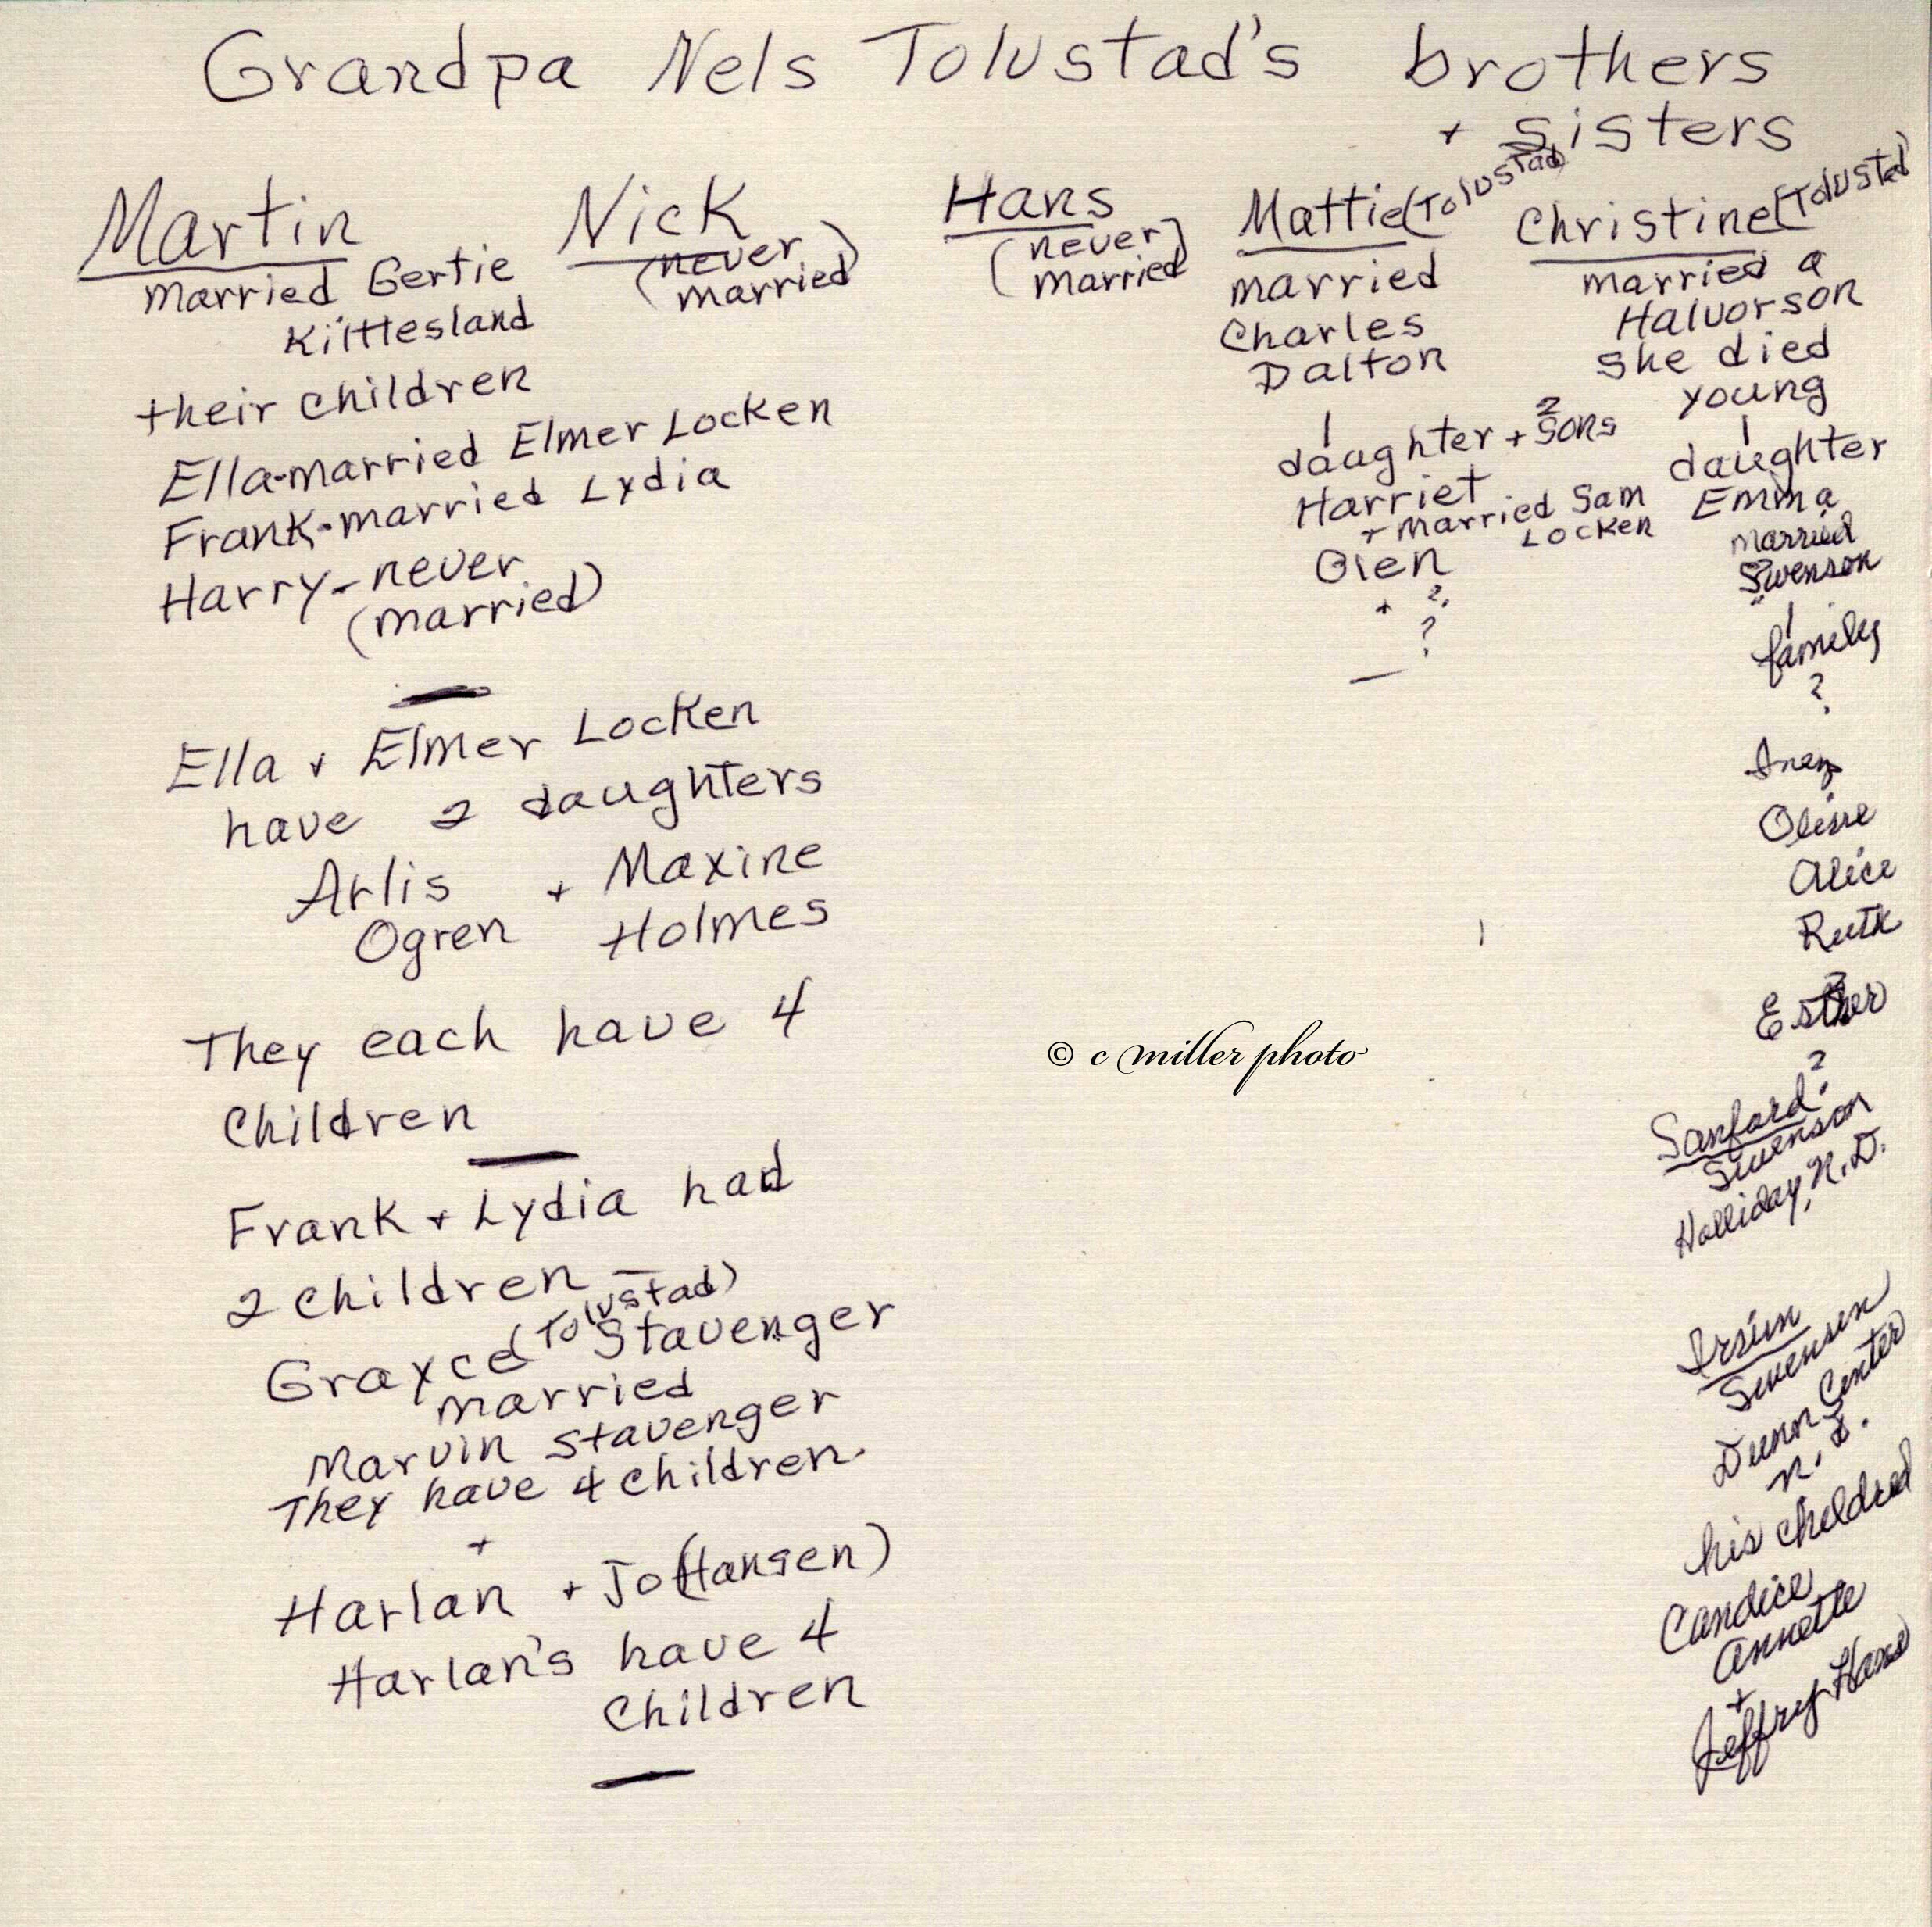 Grandpa Nels Tolvstad's brothers
+ sisters
Martin
married Gertie
Kittlesland
their children
Ella-married Elmer Locken
Frank-married Lydia
Harry-never
(married)
Ella + Elmer Locken
have 2 daughters
Arlis + Maxine
Ogren Holmes
They each have 4
children
Frank + Lydia had
2 children —
Grayce (Tolvstad) Stavenger
married
Marvin Stavenger
They have 4 children.
+
Harlan + Jo (Hansen)
Harlan's have 4
children
Nick
(never
married)
Hans
(never
married)
Mattie (Tolvstad)
married
Charles
Dalton
1 2
daughter + sons
Harriet
+ married Sam
Locken
Oien
+ ?
?
Christine (Tolvstad)
married a
Halvorson
she died
young
1
daughter
Emma
married
Swenson
1
family
?
Inez
Olive
Alice
Ruth
?
Esther
?
Sanford
Swenson
Holliday, N.D.
Swensen
Dunn Center
N.D.
his children
Candice
Annette
+
Jeffrey Hans
© c miller photo